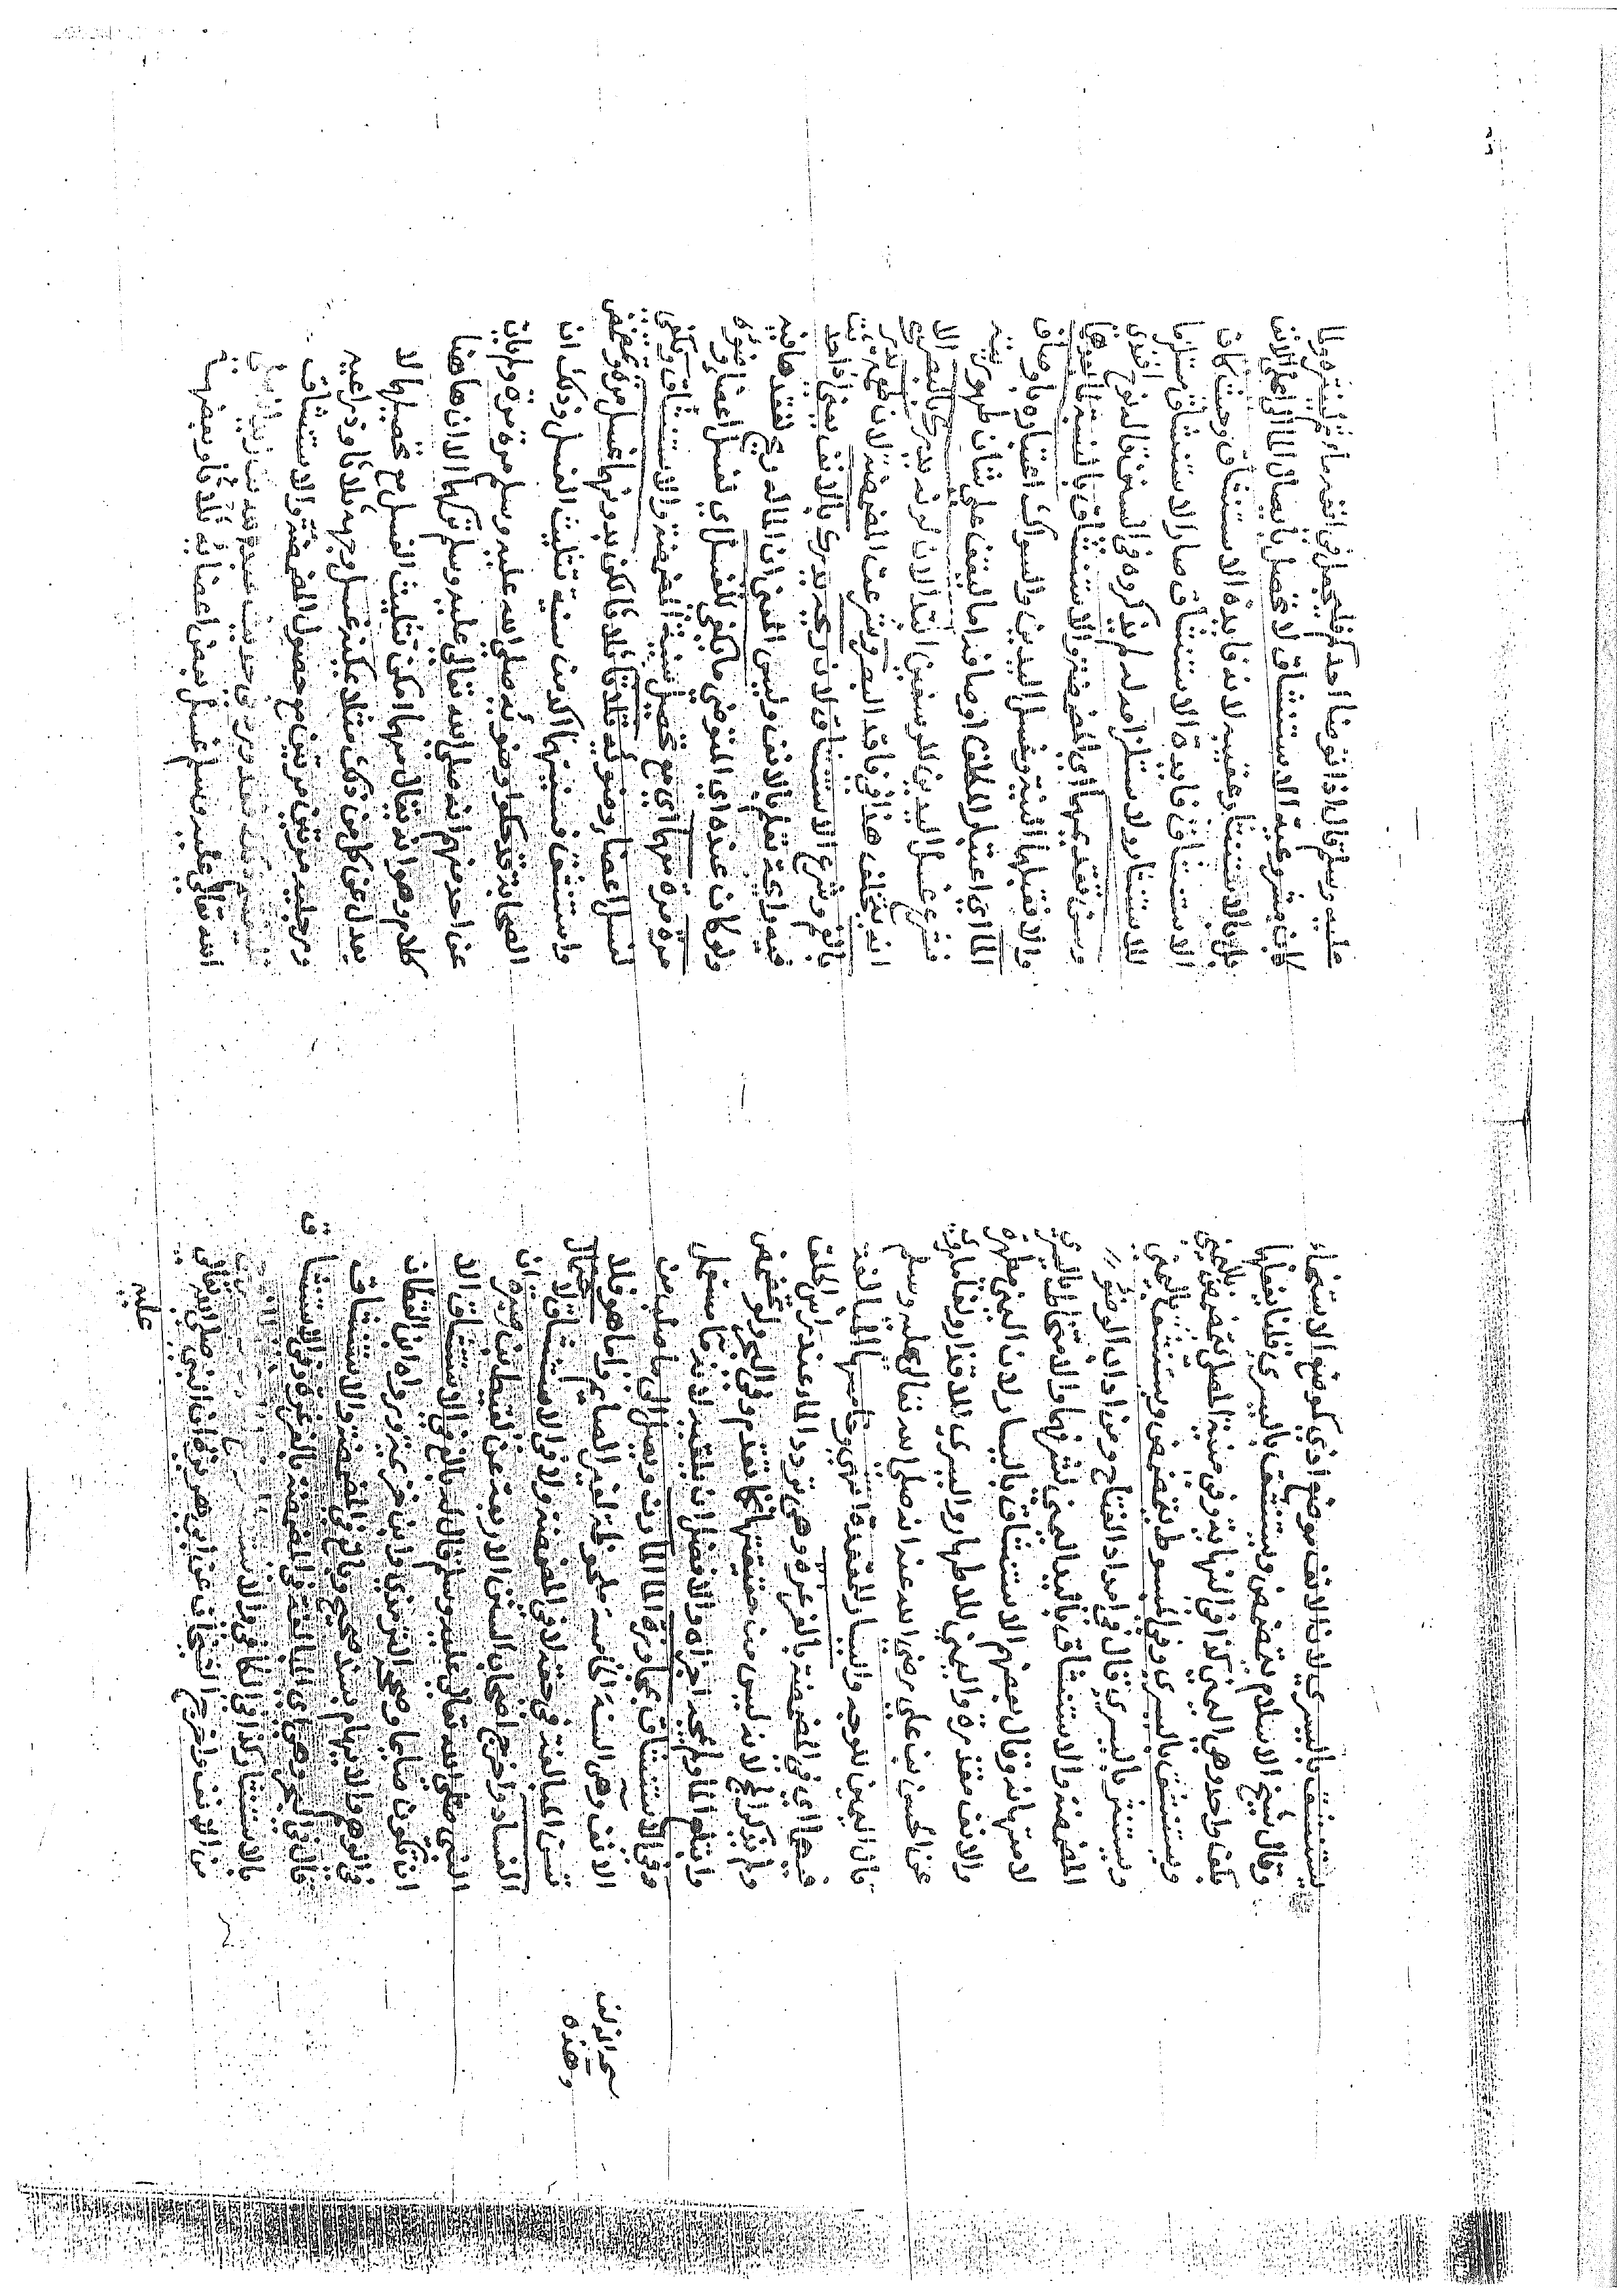 يستنشق باليسرى لان الانف موضع اذى كموضع الاستنجاء
وقال شيخ الاسلام يتمضمض ويستنشق باليسرى قلنا يفعلها
بكف واحد وهي اليمنى كذا في النهاية وفي منية المصلى يتمضمض باليمنى
ويستنشق باليسرى وفي المبسوط يتمضمض ويستنشق باليمنى
ويستنثر باليسرى قال في امداد الفتاح ومن اداب الوضوء
المضمضة والاستنشاق باليد اليمنى لشرفها والامتخاط باليسرى
لامتهانه وقال بعضهم الاستنشاق باليسار لان الفم مطهرة
والانف مقذرة واليمين للاطهار واليسرى للاقذار ولنا ما روي
عن الحسن بن علي رضي الله عنه انه صلى الله تعالى عليه وسلم
قال اليمين للوجه واليسار للمقعدة انتهى وخامسها المبالغة
فيهما اي في المضمضة بالغرغرة وهي تردد الماء عند راس الحلق
ولم يذكر المج لانه ليس من حقيقتها كما تقدم وفي البحر ولو تمضمض
وابتلع الماء ولم يمجه اجزاه والافضل ان يلقيه لانه ماء مستعمل
وفي الاستنشاق بمجاوزة الماء المارن ويصل الى ما صلب من
الانف وهي السنة الخامسة ملحوظة لغير الصائم واما هو فلا
تسن المبالغة في حقه لا في المضمضة ولا في الاستنشاق لاحتمال
الفساد واخرج اصحاب السنن الاربعة عن لقيط بن صبرة ان
النبي صلى الله تعالى عليه وسلم قال له بالغ في الاستنشاق الا
ان تكون صائما وصححه الترمذي وابن خزيمة ورواه ابن القطان
في الوهم والايهام بسند صحيح وبالغ في المضمضة والاستنشاق
قال في البحر وهي اي المبالغة في المضمضة بالغرغرة وفي الاستنشاق
بالاستنثار كذا في الكافي والاستنثار
من الانف واخرج الشيخان عن ابي هريرة ان النبي صلى الله تعالى
عليه
عليه وسلم قال اذا توضا احدكم فليجعل في انفه ماء ثم لينتثر ولما
كانت مشروعية الاستنشاق لا تحصل بايصال الماء الى اعلى الانف
بل بالاستنثار عقيبه لانه فايدة الاستنشاق وحيث كان
الاستنشاق فايدة الاستنشاق صار الاستنشاق مستلزما
للاستنثار ولاستلزامه له لم يذكروه في السنن قاله نوح افندي
وسن تقديمهما اي المضمضة والاستنشاق بالنسبة لما بعدهما
والا فقبلهما النية وغسل اليدين والسواك اعتباره باوصاف
الماء اي اعتبار المكلف اوصاف الماء ليقف على شان طهوريته
فشرع غسل اليدين للوسفين ابتداء لان لونه يدرك بالبصر الا
انه تخلف هذا في فاقد البصر وشرعت المضمضة لان طعمه يدرى
بالفم وشرع الاستنشاق لان ريحه يدرى بالانف يعني اذا وجد
فيه رايحة تعلم بالانف وليس المعنى ان الماء له ريح نفقدها فيه
ولو كان عنده اي المتوضي ما يكفي للغسل اي لغسل اعضاء وضوئه
مرة مرة معهما اي مع تحصيل سنية المضمضة والاستنشاق ويكفي
لغسل اعضاء وضوئه ثلاثا ثلاثا لكن بدونهما غسل مرة وتمضمض
واستنشق فسنيتهما اكد من سنية تثليث الغسل وذكر ان
الصحابة قد حكوا وضوئه صلى الله عليه وسلم مرة مرة ولم يات
عن احد منهم انه صلى الله تعالى عليه وسلم تركهما الا ان هاهنا
كلام وهو انه يقال منهما امكن تثليث الغسل مع تحصيلهما لا
يعدل عن كل من ذلك مثلا يمكنه غسل وجهه ثلاثا وذراعيه
ورجليه مرتين مرتين مع حصول المضمضة والاستنشاق
الله تعالى عليه وسلم غسل بعض اعضائه ثلاثا وبعضها
سحدالانف
وهذه